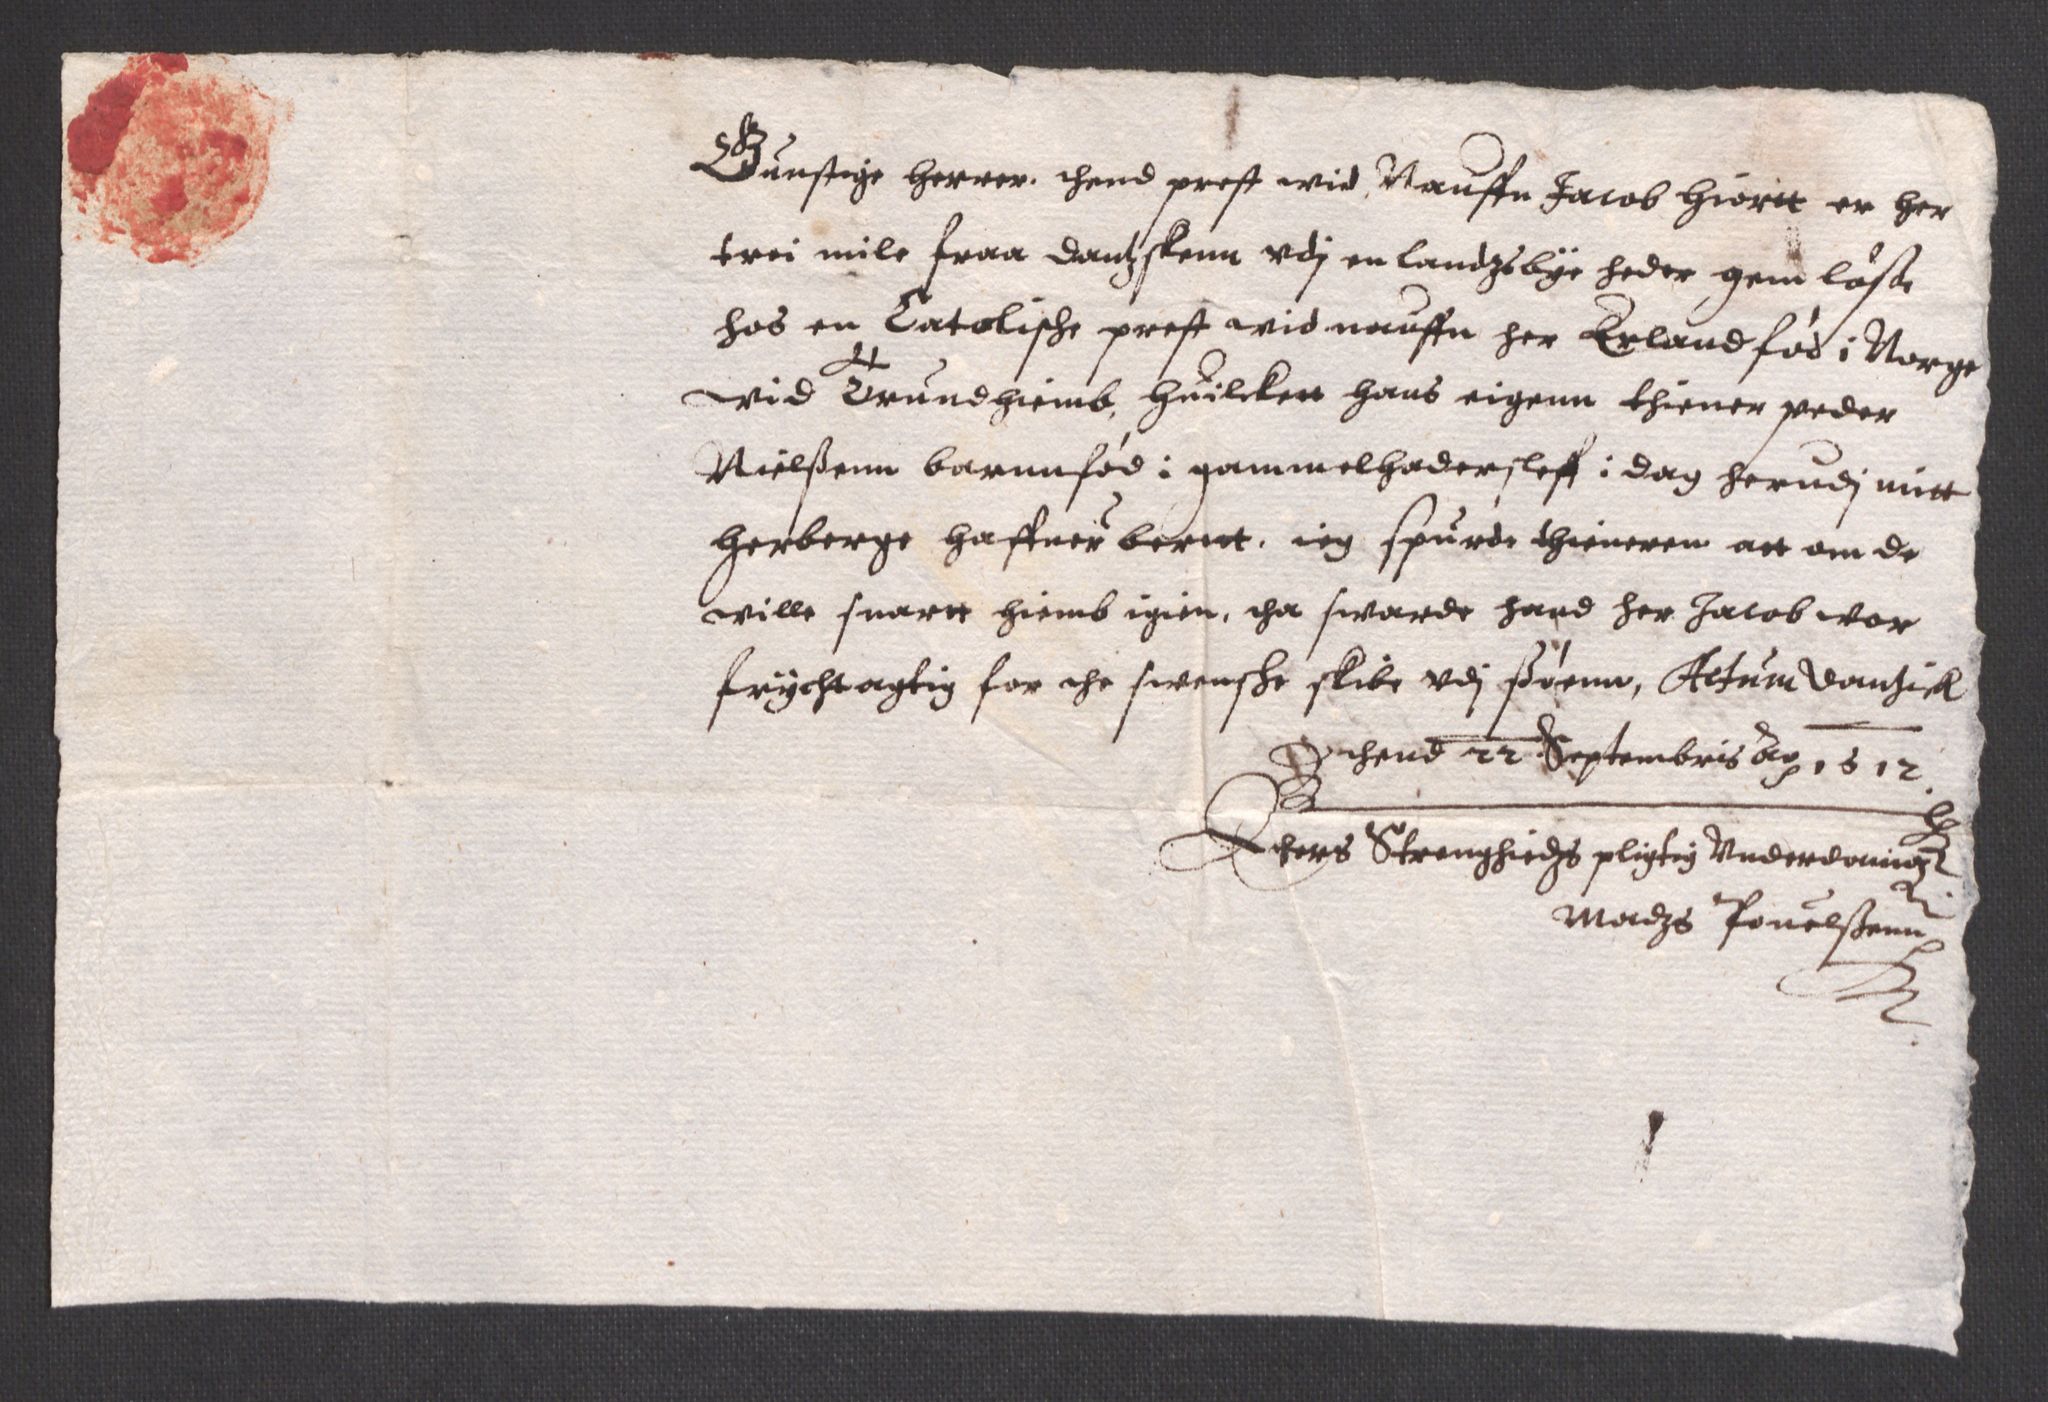 Gunstige herrer. thend prest wid Nauffn Jacob Hiortt er her
trei mile fraa dantzskenn vdj en landzsbye heder gemløsse
hos en Catolische prest wid nauffn her Erland fød i Norge
wid Trundhiemb, huilckett hans eigenn thiener peder
Nielßenn barnnfød i gammelhadersleff i dag herudj mitt
herberge haffuer berett. ieg spurde thieneren att om de
wille snartt hiemb igien, tha swarde hand her Jacob wor
frychtagtig for the swenske skibe vdj ßøenn, Actum Dantzick
thend 22 Septembris Ao 1612.
Ethers Strenghiedzs pligtig Vnderdanig
Madzs Pouelßenn